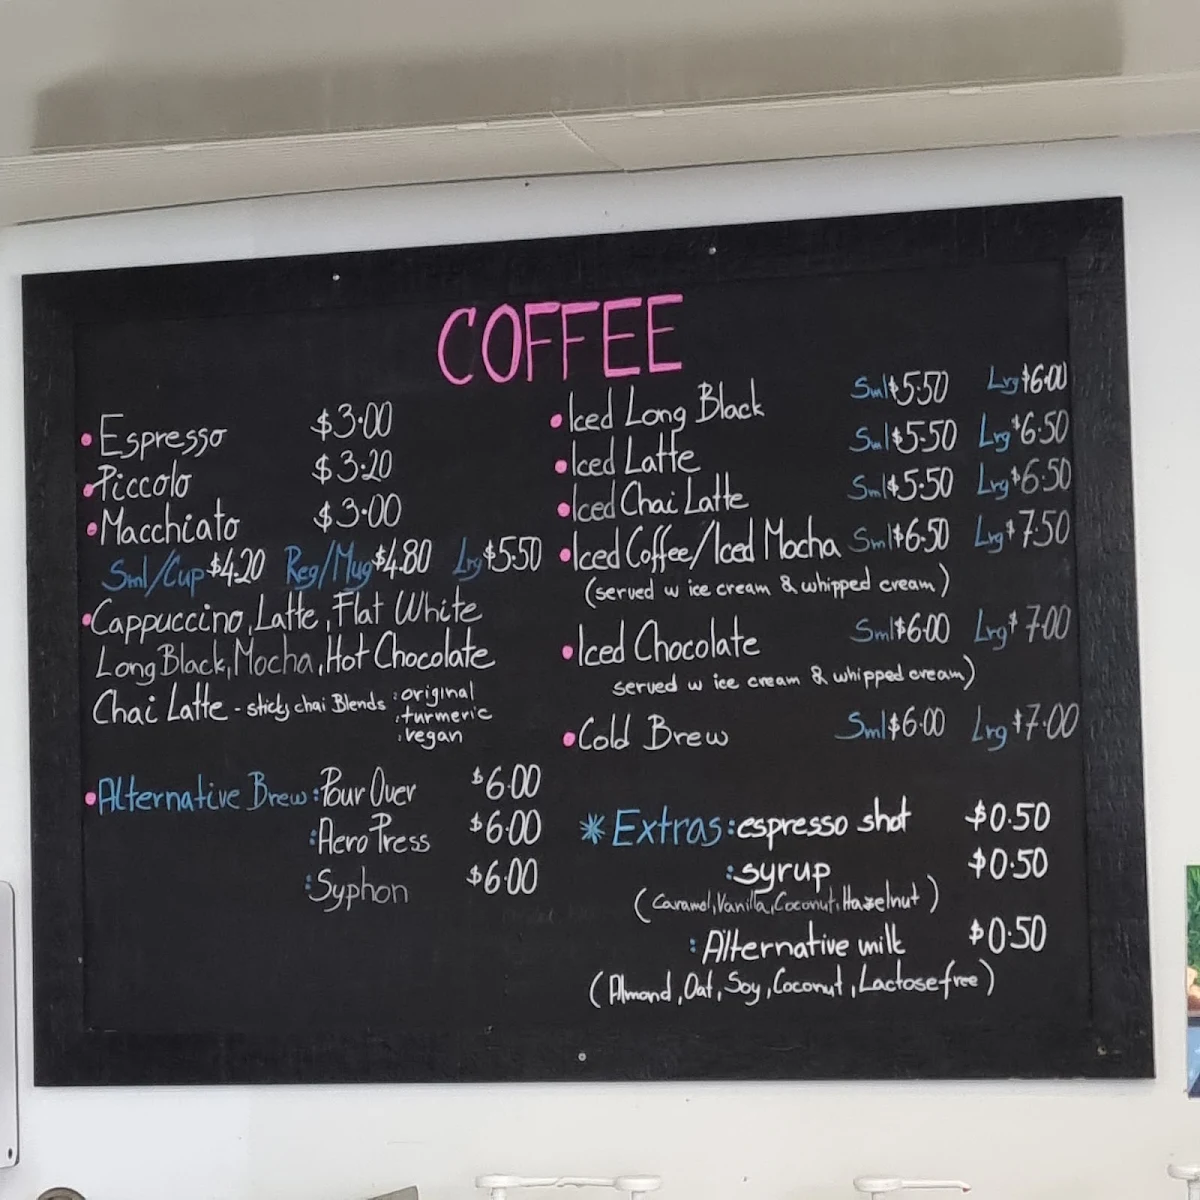 COFFEE
• Espresso $3.00
• Piccolo $3.20
• Macchiato $3.00
Sml/Cup $4.20 Reg/Mug $4.80 Lrg $5.50
• Cappuccino, Latte, Flat White
Long Black, Mocha, Hot Chocolate
Chai Latte - sticky chai Blends : original
: turmeric
: vegan
• Alternative Brew: Pour Over $6.00
: AeroPress $6.00
: Syphon $6.00
• Iced Long Black Sml $5.50 Lrg $6.00
• Iced Latte Sml $5.50 Lrg $6.50
• Iced Chai Latte Sml $5.50 Lrg $6.50
• Iced Coffee/Iced Mocha Sml $6.50 Lrg $7.50
(served w ice cream & whipped cream)
• Iced Chocolate Sml $6.00 Lrg $7.00
served w ice cream & whipped cream)
• Cold Brew Sml $6.00 Lrg $7.00
* Extras: espresso shot $0.50
: syrup $0.50
(Caramel, Vanilla, Coconut, Hazelnut)
: Alternative milk $0.50
(Almond, Oat, Soy, Coconut, Lactose free)